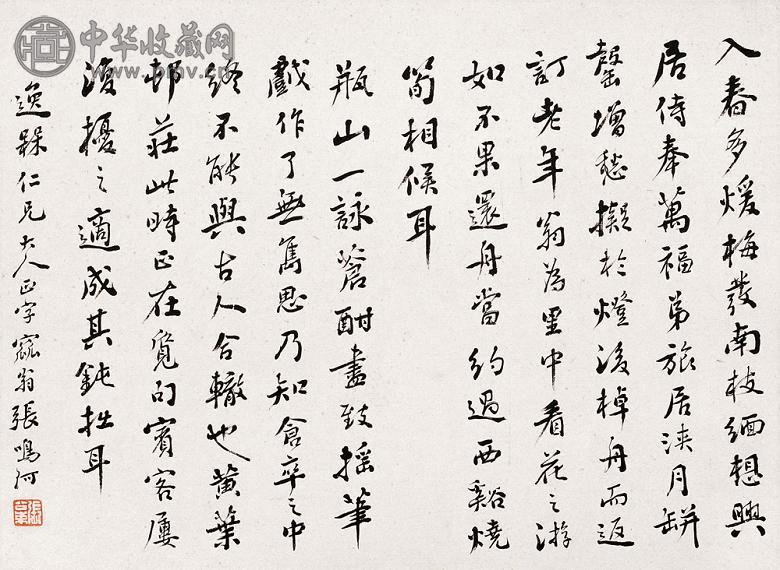 入春多煖梅發南枝緬想興
居侍奉萬福弟旅居浹月缾
罄增愁擬於燈後棹舟而返
訂老年翁為里中看花之游
如不果還舟當約過西谿燒
筍相候耳
瓶山一詠蒼酣畫致搖筆
戲作了無雋思乃知倉卒之中
終不能與古人合轍也黃葉
邨莊此時正在覓句賓客屢
復擾之適成其鈍拙耳
逸槑仁兄大人正字 窳翁張鳴珂
中华收藏网